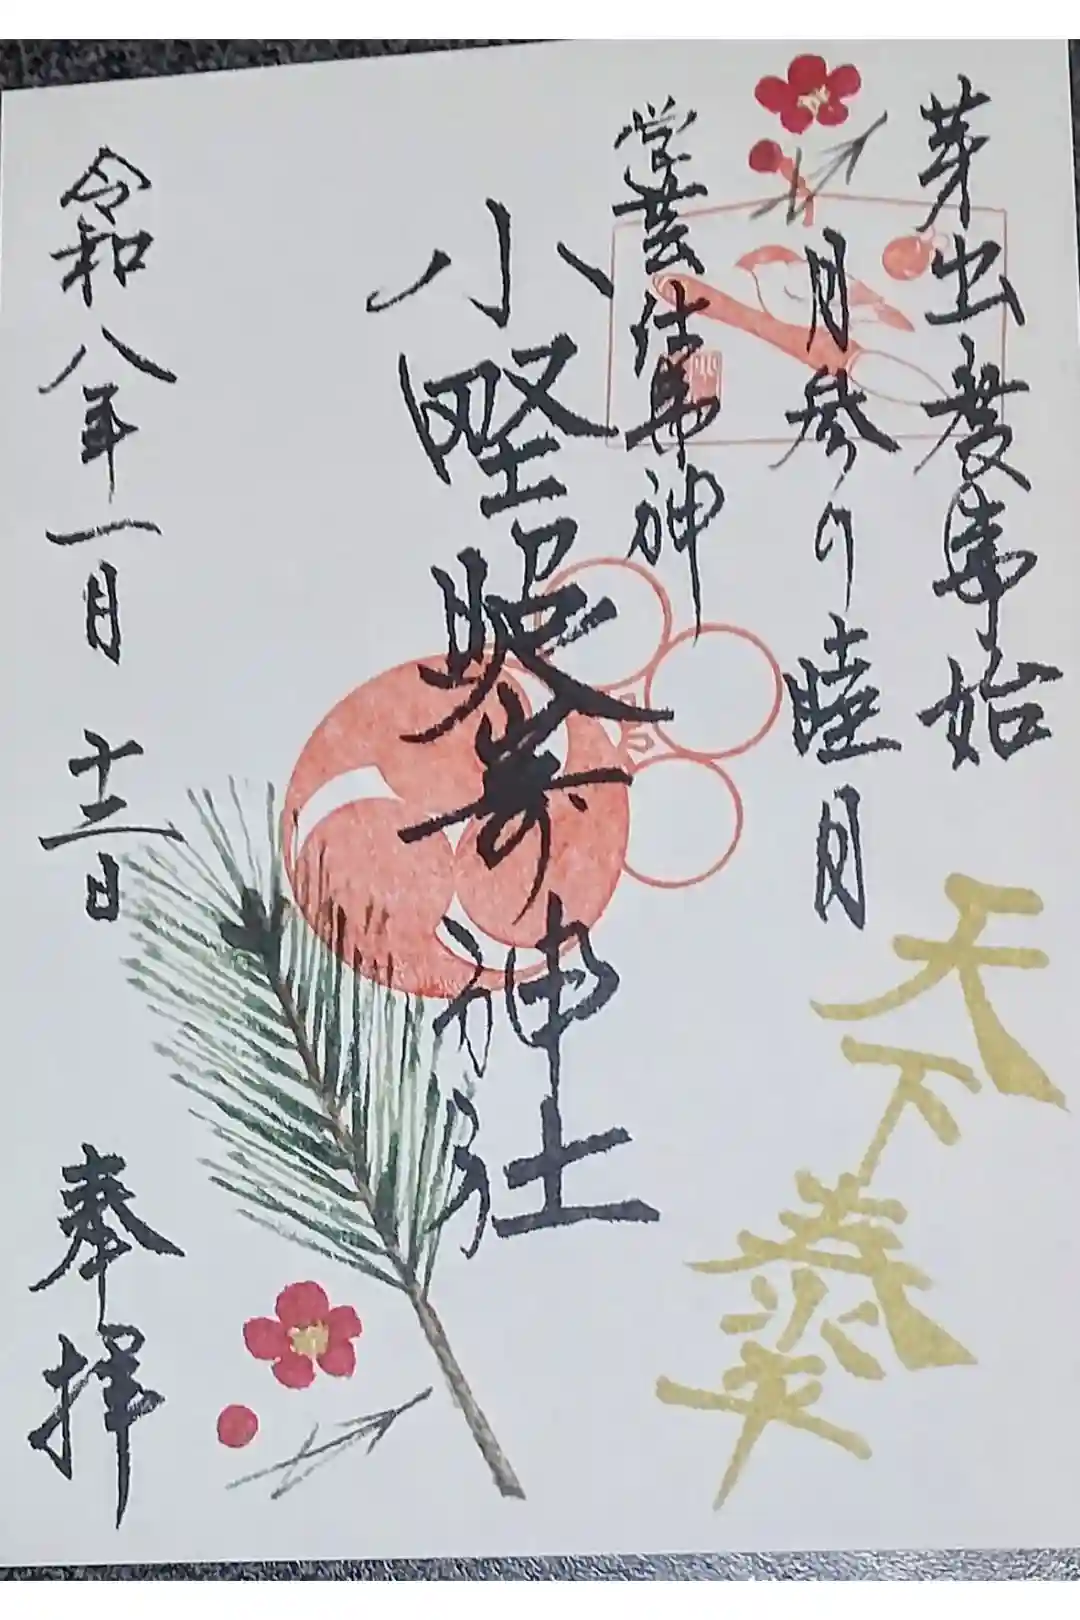 芽出度事始
月参り睦月
学芸仕事神
小野照崎神社
令和八年一月十二日
奉拝
天下泰平